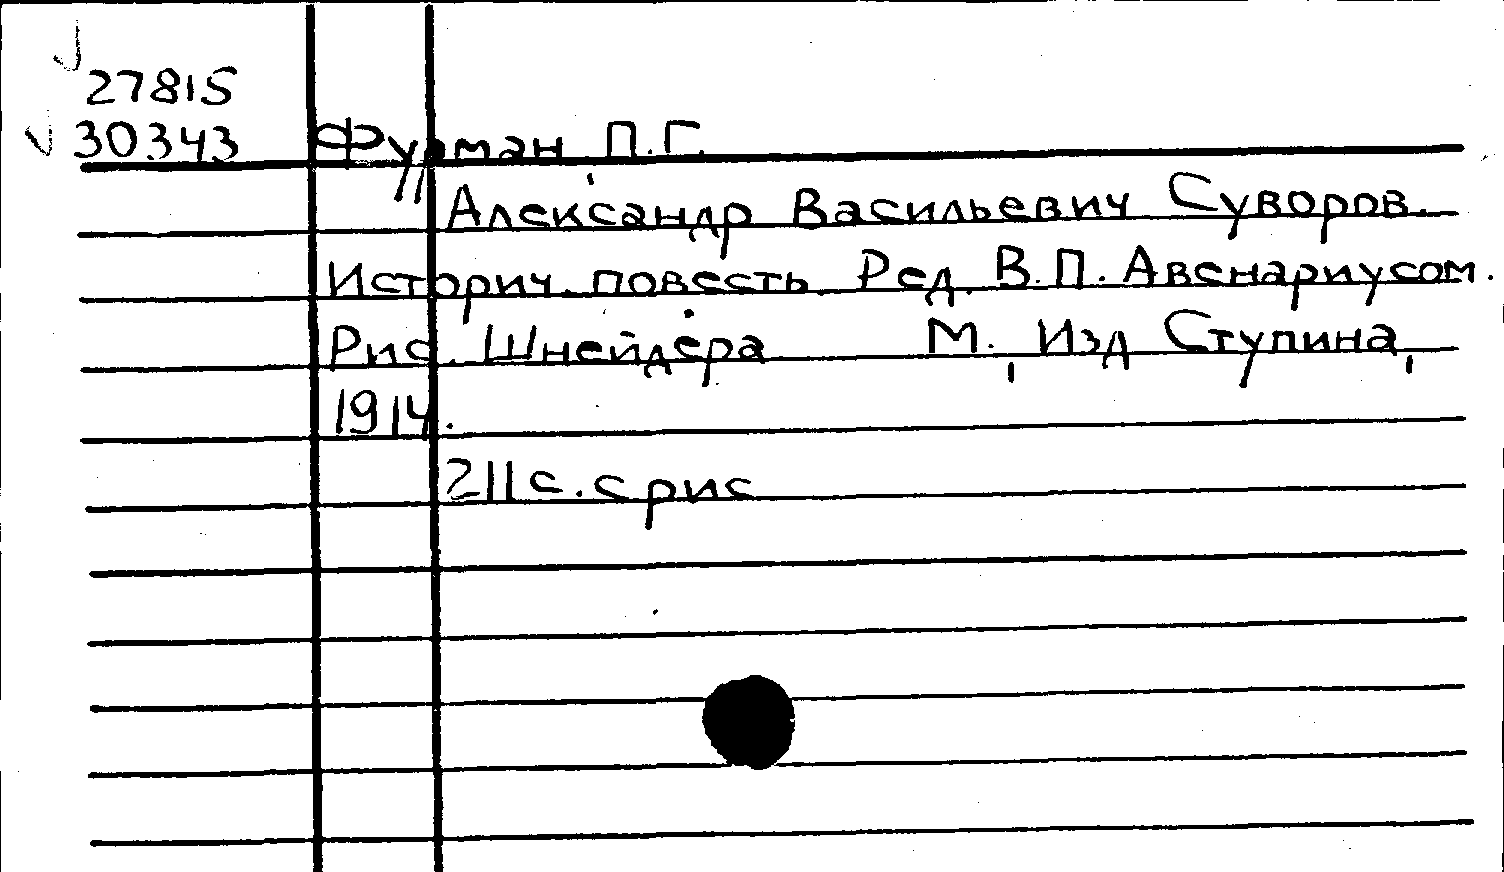 27815
30343 Фурман, П.Г.
Александр Васильевич Суворов.
Историч. повесть. Ред. В.П. Авенариусом.
Рис. Шнейдера М., Изд Ступина,
1914.
211с. с рис